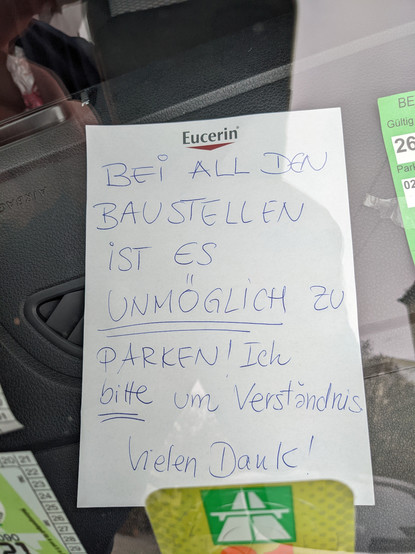 Eucerin
BEI ALL DEN
BAUSTELLEN
IST ES
UNMÖGLICH ZU
PARKEN! Ich
bitte um Verständnis
Vielen Dank!
AIRBAG
BE
Gültig
26
Park
02
20 21